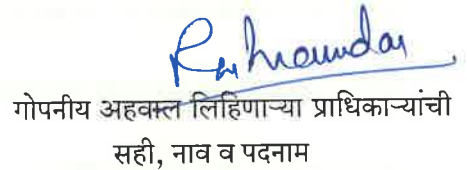 गोपनीय अहवाल लिहिणाऱ्या प्राधिकाऱ्यांची
सही, नाव व पदनाम